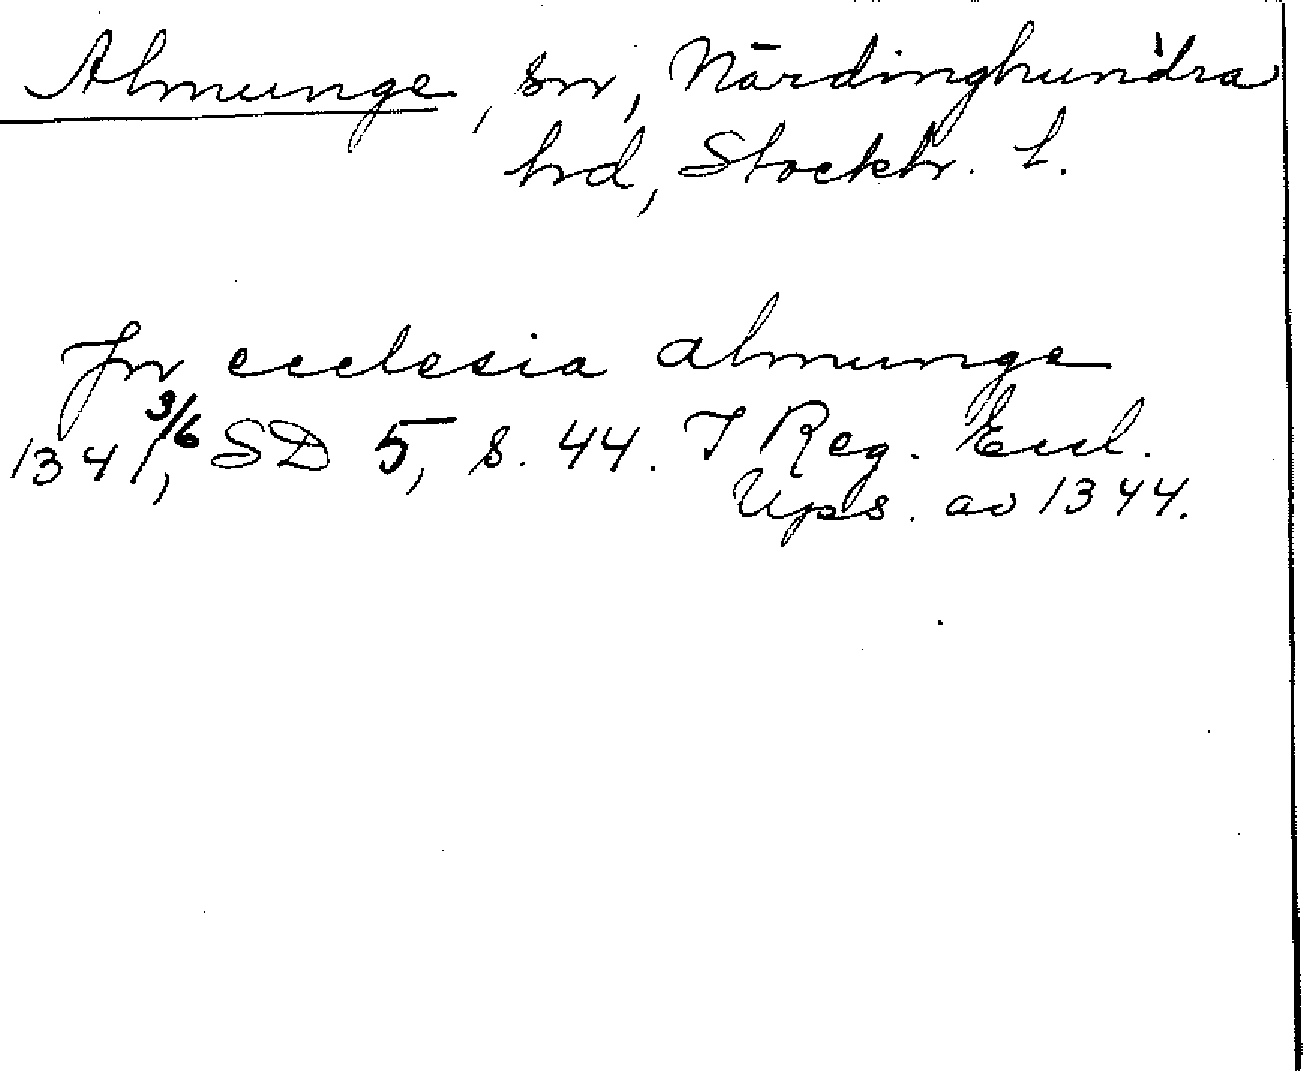 Almunge, sn, Närdinghundra
hd, Stockh. l.
Jn ecclesia almunge
1341 3/6, SD 5, s. 44. I Reg. Eccl.
Ups. av 1344.